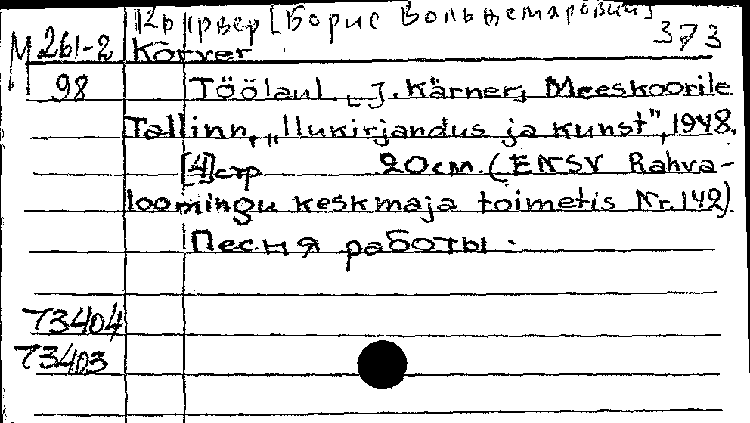 Кырвер [Борис Вольдемарович]
М 261-2 Kõrver 373
98 Töölaul. [J. Kärner]. Meeskoorile
Tallinn, „Ilukirjandus ja kunst", 1948.
[4]стр 20 см. (ENSV Rahva-
loomingu keskmaja toimetis Nr. 142)
Песня работы.
73404
73403